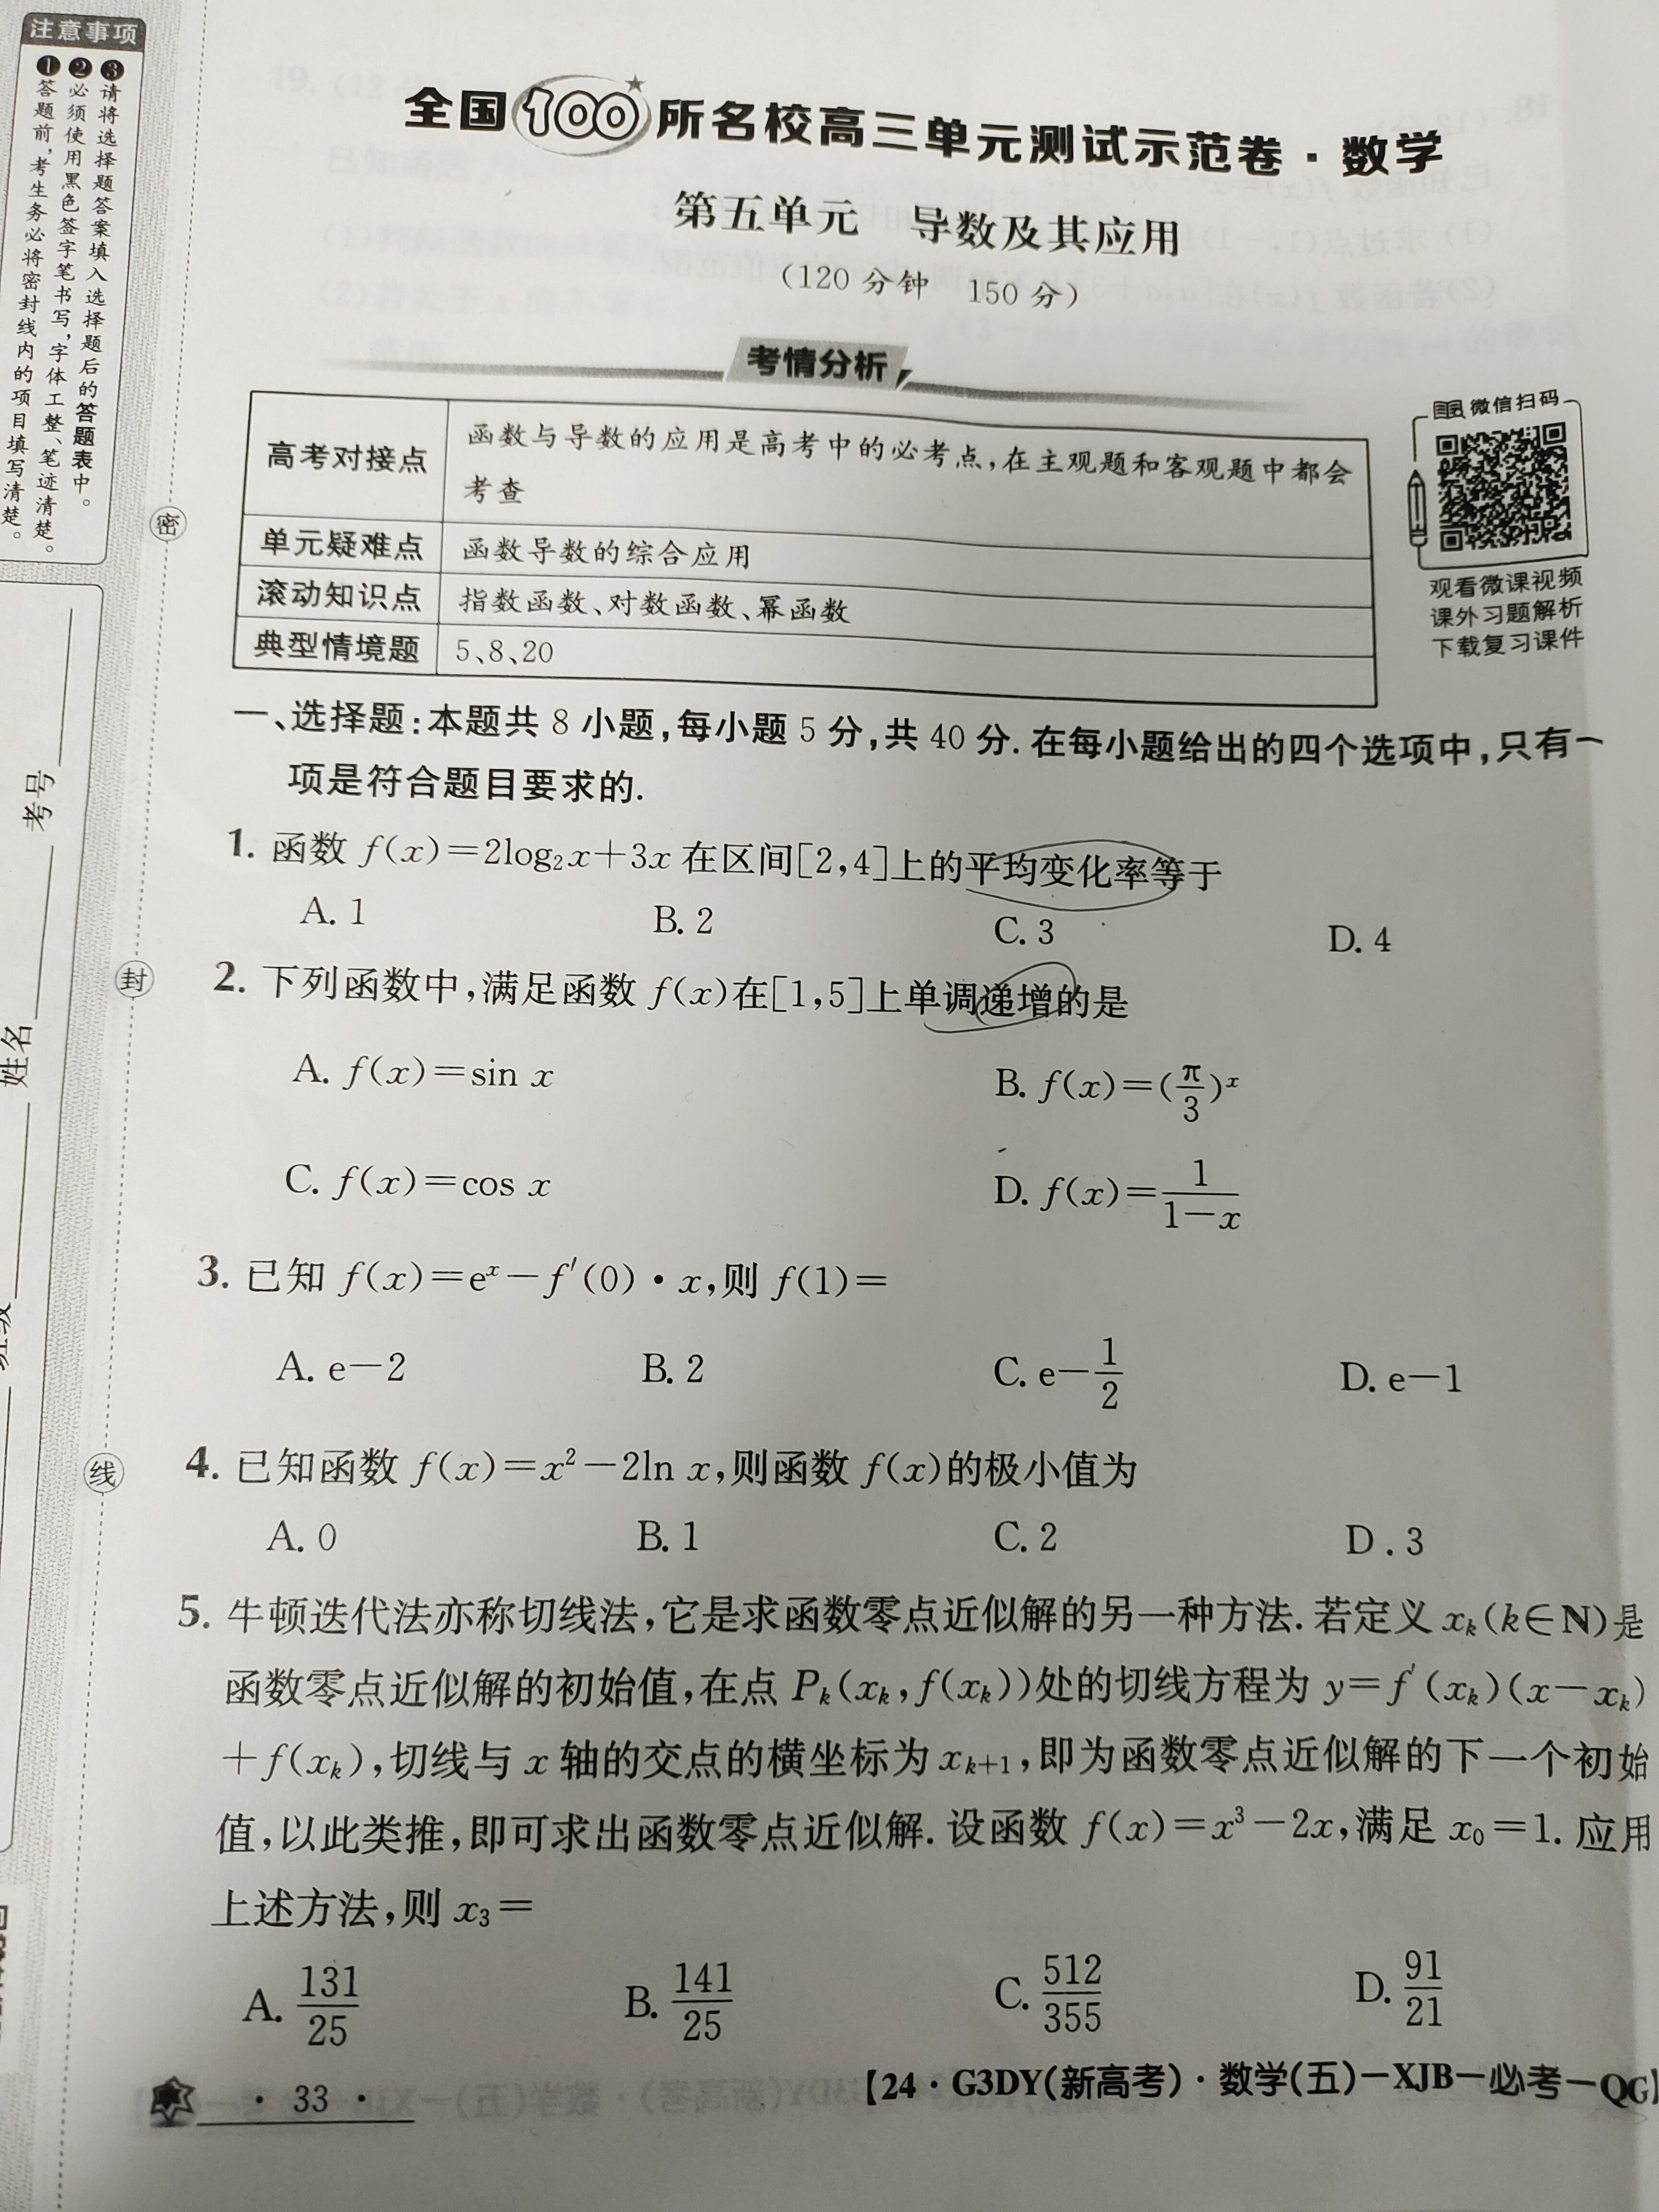 注意事项
❶答题前，考生务必将密封线内的项目填写清楚。
❷必须使用黑色签字笔书写，字体工整、笔迹清楚。
❸请将选择题答案填入选择题后的答题表中。
考号
姓名
密
封
线
全国100所名校高三单元测试示范卷·数学
第五单元 导数及其应用
(120分钟 150分)
考情分析
高考对接点 函数与导数的应用是高考中的必考点,在主观题和客观题中都会
考查
单元疑难点 函数导数的综合应用
滚动知识点 指数函数、对数函数、幂函数
典型情境题 5、8、20
微信扫码
观看微课视频
课外习题解析
下载复习课件
一、选择题:本题共8小题,每小题5分,共40分.在每小题给出的四个选项中,只有一
项是符合题目要求的.
1. 函数 f(x)=2log₂x+3x 在区间[2,4]上的平均变化率等于
A. 1 B. 2 C. 3 D. 4
2. 下列函数中,满足函数 f(x)在[1,5]上单调递增的是
A. f(x)=sin x B. f(x)=(π/3)ˣ
C. f(x)=cos x D. f(x)=1/(1-x)
3. 已知 f(x)=eˣ-f′(0)·x,则 f(1)=
A. e-2 B. 2 C. e-1/2 D. e-1
4. 已知函数 f(x)=x²-2ln x,则函数 f(x)的极小值为
A. 0 B. 1 C. 2 D. 3
5. 牛顿迭代法亦称切线法,它是求函数零点近似解的另一种方法.若定义 xₖ(k∈N)是
函数零点近似解的初始值,在点 Pₖ(xₖ,f(xₖ))处的切线方程为 y=f′(xₖ)(x-xₖ)
+f(xₖ),切线与 x 轴的交点的横坐标为 xₖ₊₁,即为函数零点近似解的下一个初始
值,以此类推,即可求出函数零点近似解.设函数 f(x)=x³-2x,满足 x₀=1.应用
上述方法,则 x₃=
A. 131/25 B. 141/25 C. 512/355 D. 91/21
· 33 ·
【24·G3DY(新高考)·数学(五)-XJB-必考-QG】